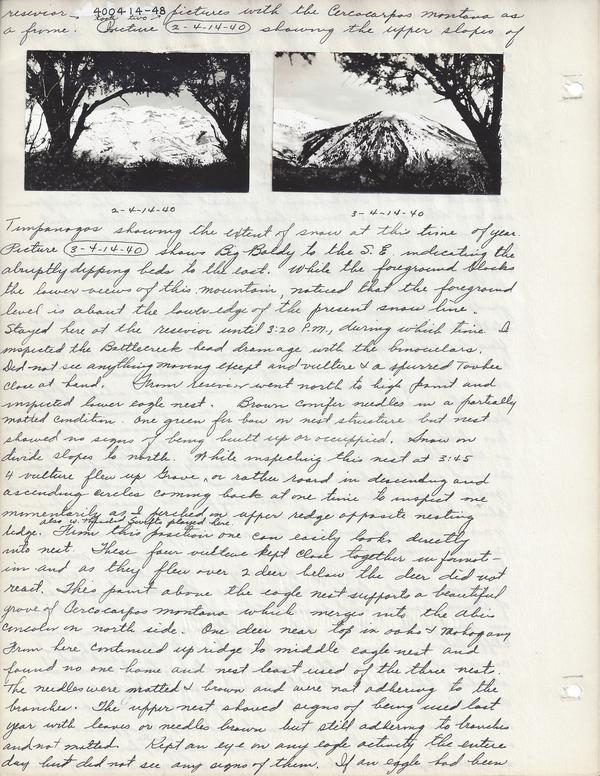 resevior. 400414-48 pictures with the Cercocarpos montana as
took two
a frame. Picture 2-4-14-40 showing the upper slopes of
2-4-14-40
3-4-14-40
Timpanogos showing the extent of snow at this time of year.
Picture 3-4-14-40 shows Big Baldy to the S.E. indicating the
abruptly dipping beds to the east. While the foreground blocks
the lower views of this mountain, noticed that the foreground
level is about the lower edge of the present snow line.
Stayed here at the resevior until 3:20 P.M., during which time I
inspected the Battlecreek head drainage with the binoculars.
Did not see anything moving except and vulture & a spurred Towhee
close at hand. From resevior went north to high point and
inspected lower eagle nest. Brown conifer needles in a partially
matted condition. One green fir bow on nest structure but nest
showed no signs of being built up or occuppied. Snow on
divide slopes to north. While inspecting this nest at 3:45
4 vulture flew up Grove, or rather roard in descending and
ascending circles coming back at one time to inspect me
momentarily as I perched on upper redge opposite nesting
also w. throated Swifts played here.
ledge. From this position one can easily look directly
into nest. These four vulture kept close together in format-
ion and as they flew over 2 deer below the deer did not
react. This point above the eagle nest supports a beautiful
grove of Cercocarpos montana which merges into the abies
concolor on north side. One deer near top in oaks & Mahogany
From here continued up ridge to middle eagle nest and
found no one home and nest least used of the three nest.
The needles were matted & brown and were not adhering to the
branches. The upper nest showed signs of being used last
year with leaves or needles brown but still adhering to branches
and not matted. Kept an eye on any eagle activity the entire
day but did not see any signs of them. If an eagle had been